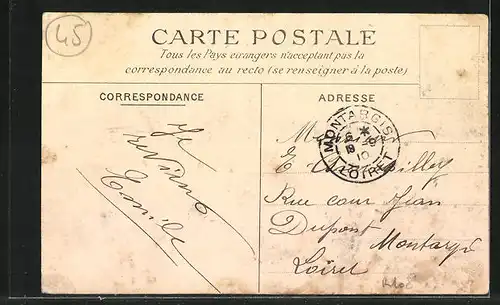 45
CARTE POSTALE
Tous les Pays étrangers n'acceptant pas la
correspondance au recto (se renseigner à la poste)
CORRESPONDANCE
ADRESSE
MONTARGIS
LOIRET
Je
reviens
Emile
E
Rue cour Jean
Dupont Montargis
Loiret